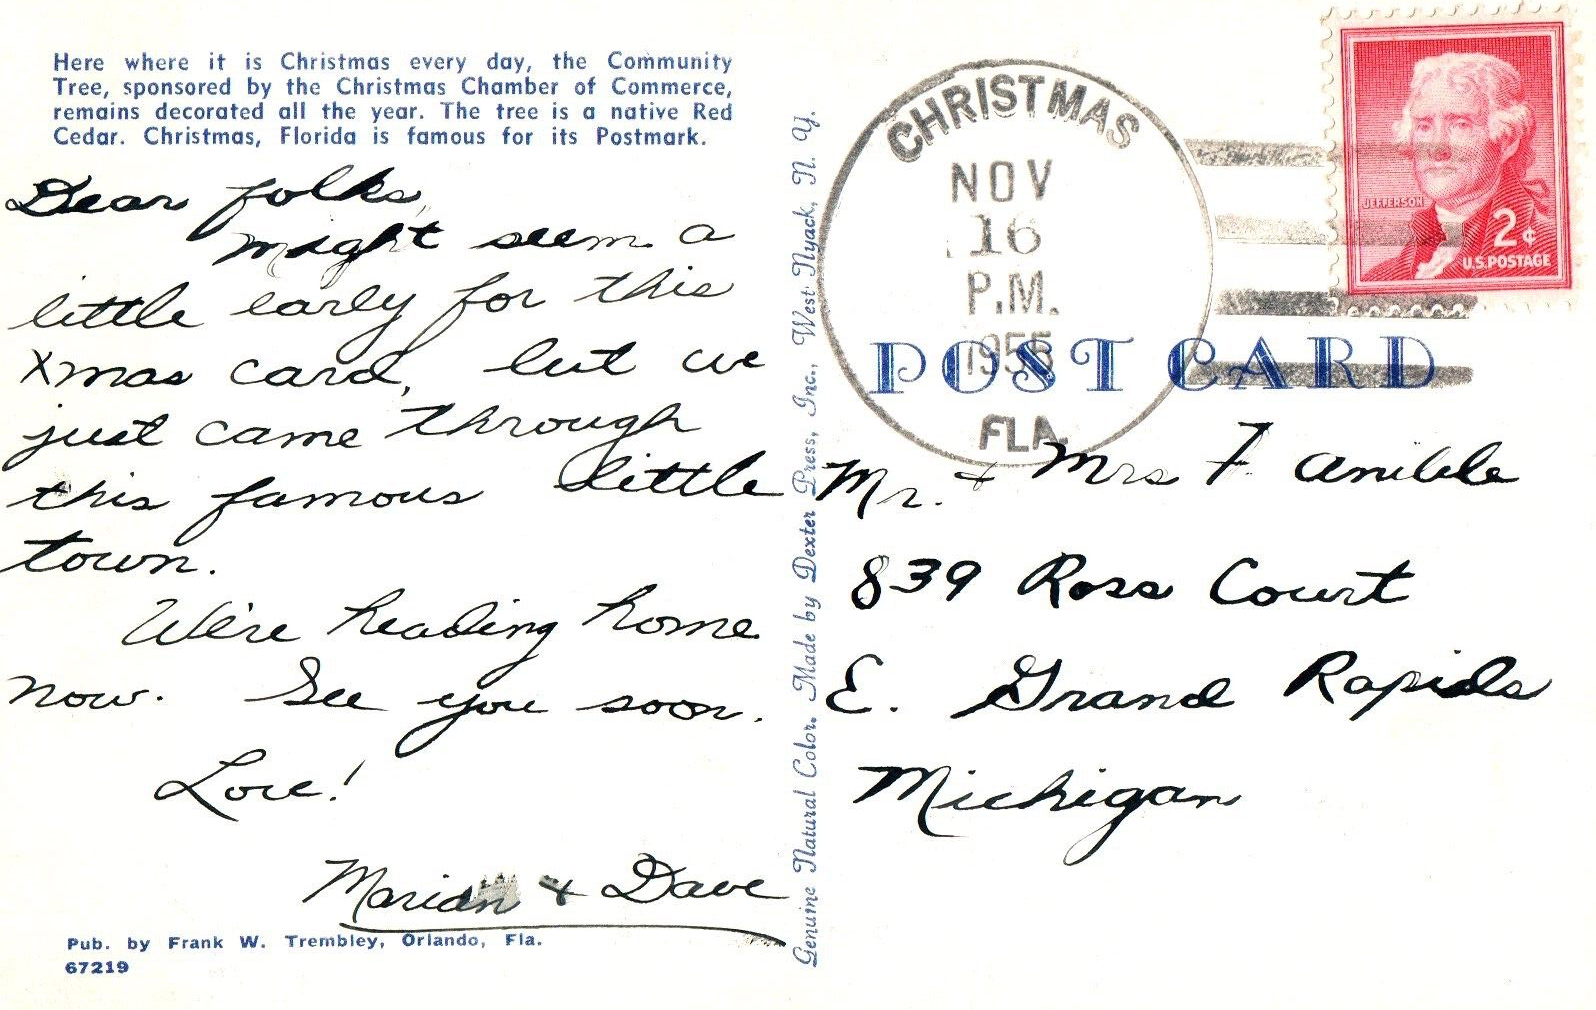 Here where it is Christmas every day, the Community
Tree, sponsored by the Christmas Chamber of Commerce,
remains decorated all the year. The tree is a native Red
Cedar. Christmas, Florida is famous for its Postmark.
Dear folks,
might seem a
little early for this
Xmas card, but we
just came through
this famous little
town.
We're heading home
now. See you soon.
Love!
Marian & Dave
Pub. by Frank W. Trembley, Orlando, Fla.
67219
Genuine Natural Color. Made by Dexter Press, Inc., West Nyack, N. Y.
CHRISTMAS
NOV
16
P.M.
FLA.
JEFFERSON
2¢
U.S. POSTAGE
POST CARD
Mr. & Mrs F.
839 Ross Court
E. Grand Rapids
Michigan